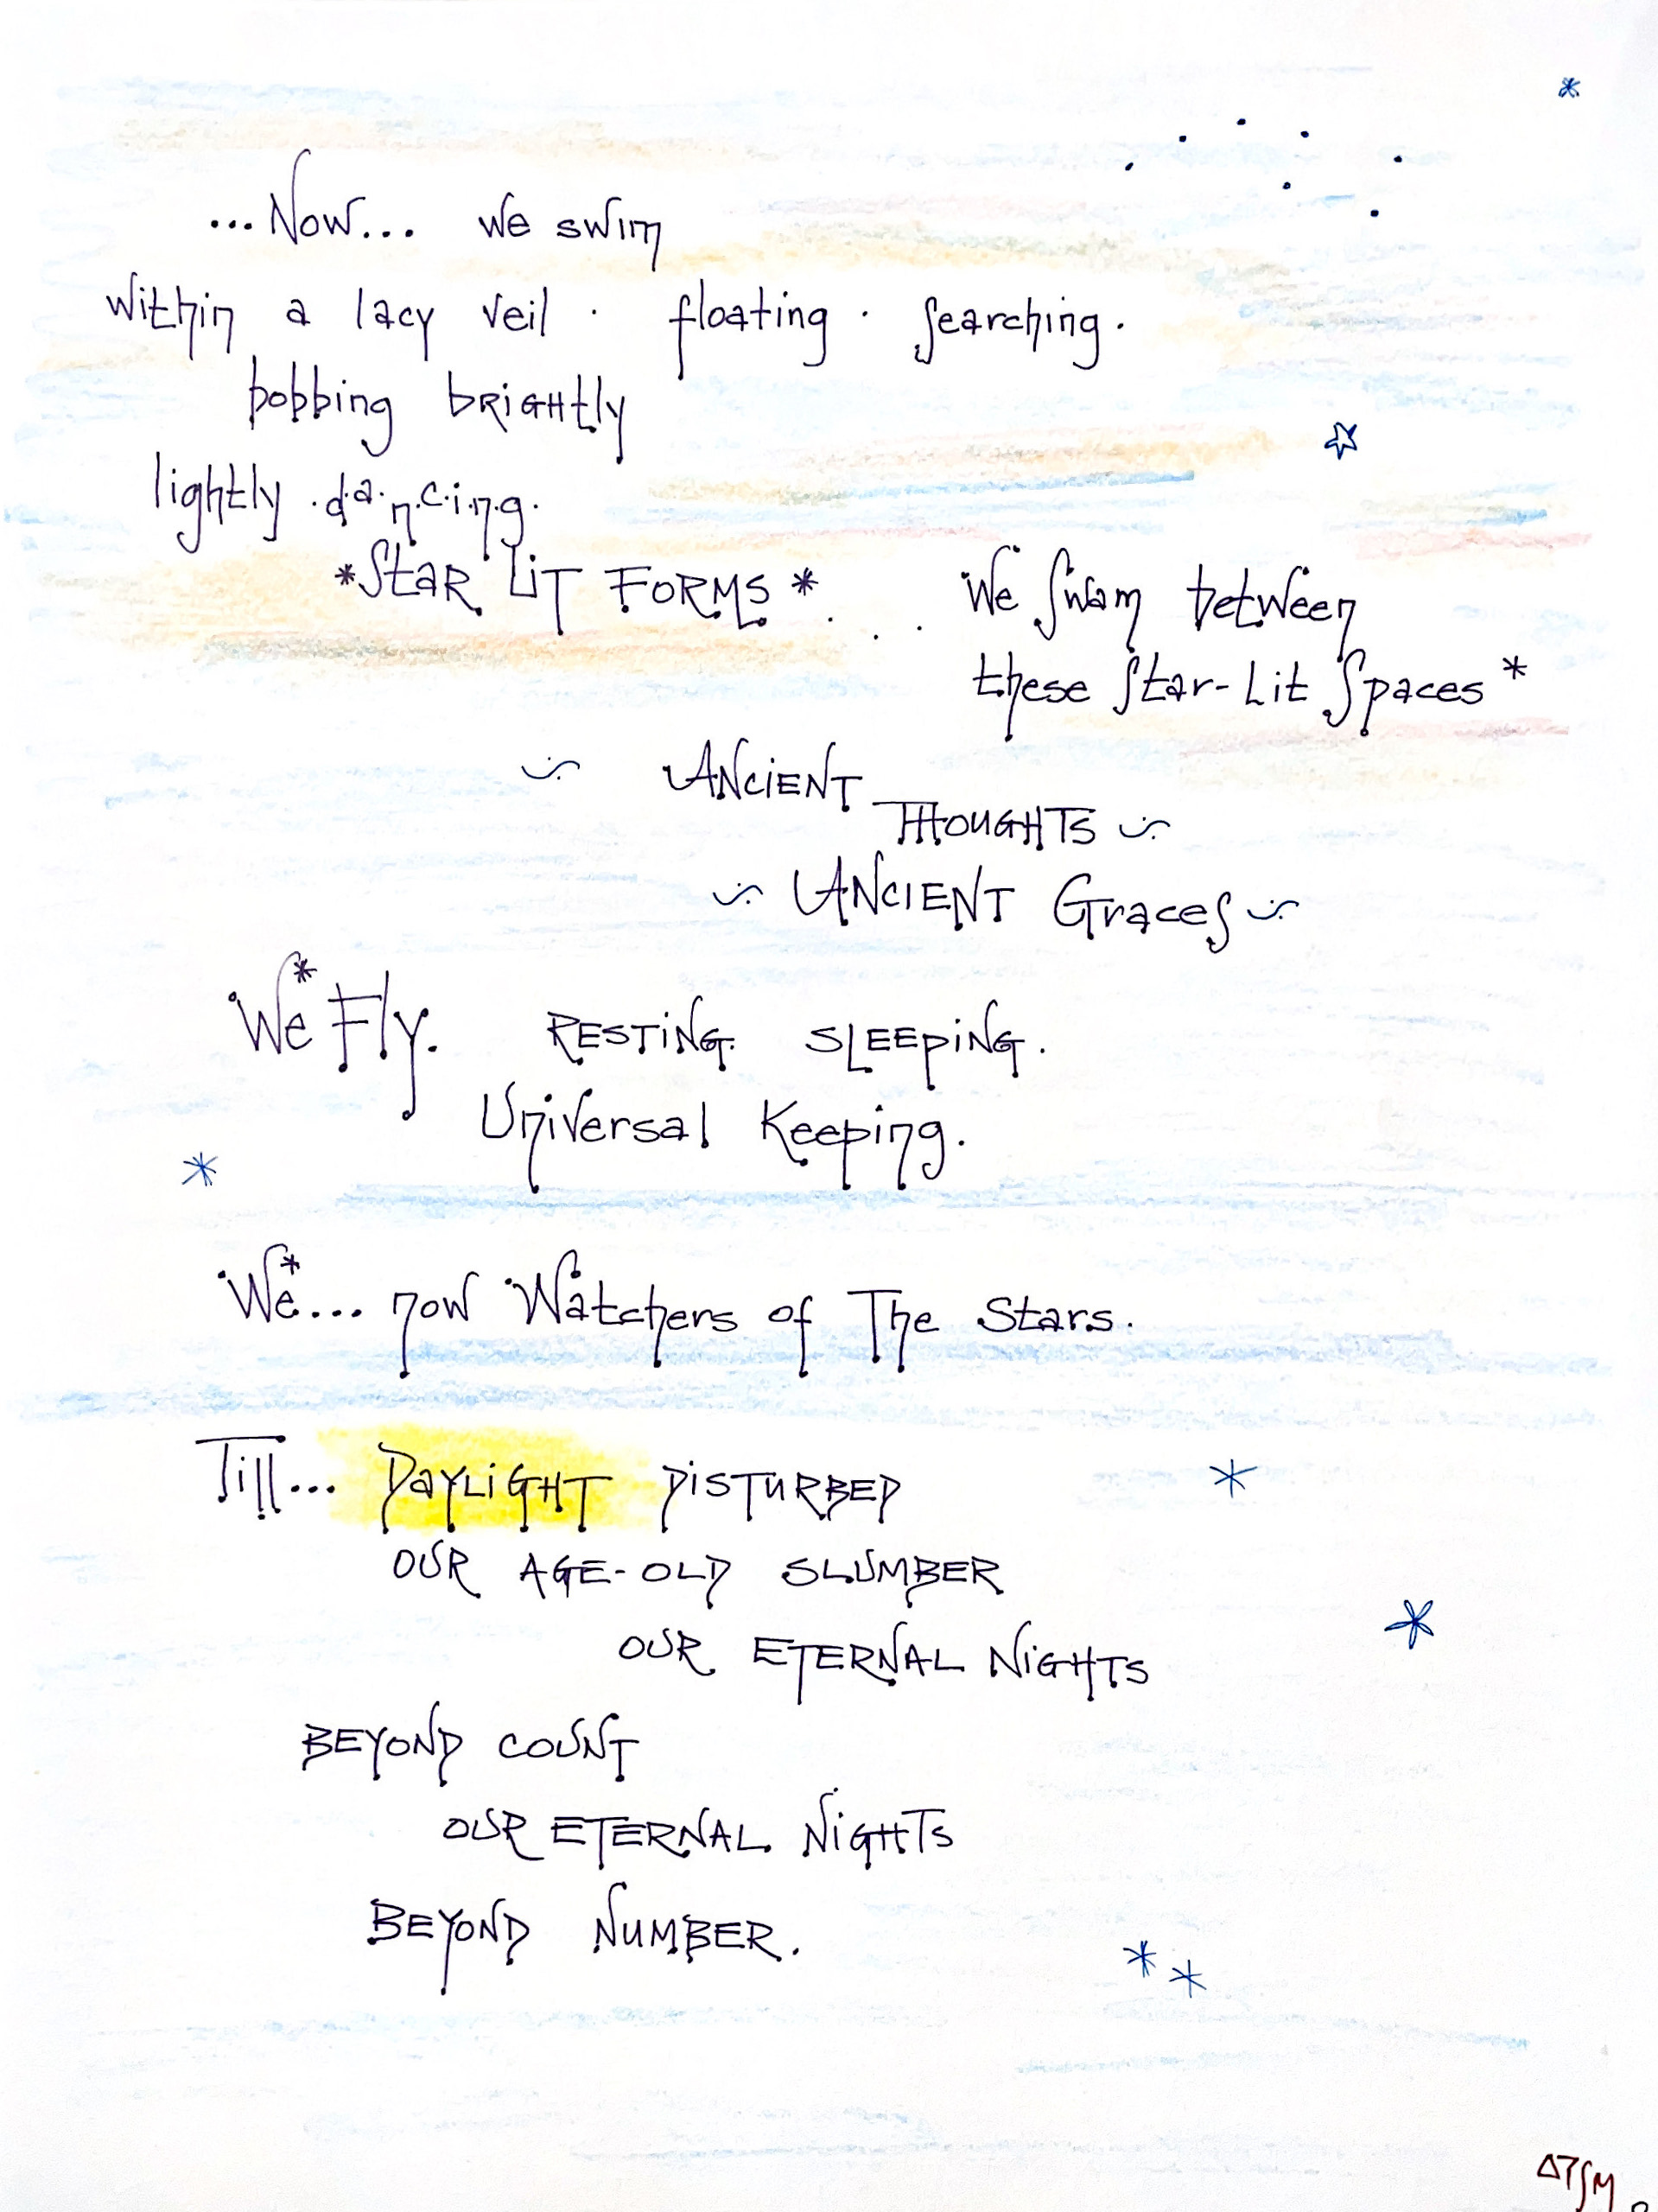 ...Now... we swim
within a lacy veil · floating · searching.
bobbing bRiGHtly
lightly ·d·a·n·c·i·n·g·
*StaR LiT FORMS* . . .
We Swam between
these Star-Lit Spaces *
~ ANCiENT
THOUGHTS ~
~ ANCIENT Graces ~
We* Fly. RESTiNG. SLEEPiNG.
Universal Keeping.
We*... now Watchers of The Stars.
Till... DAYLiGHT DiSTURBED
OUR AGE-OLD SLUMBER
OUR ETERNAL NiGHTS
BEYOND COUNT
OUR ETERNAL NiGHTs
BEYOND NUMBER.